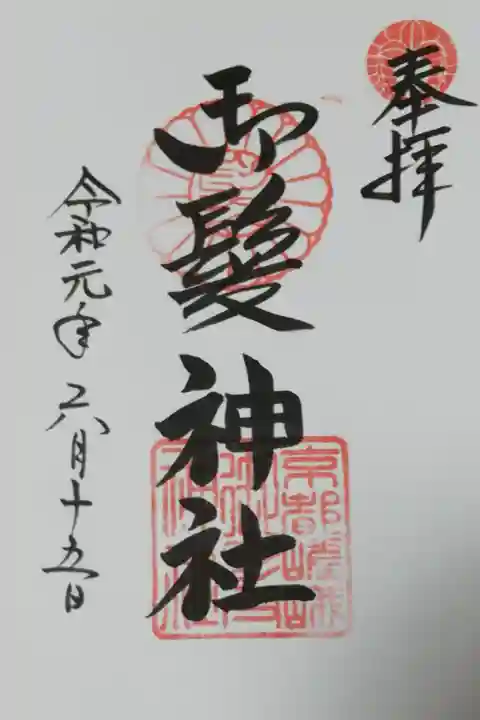 奉拝
御髪神社
令和元年 六月十五日
京都嵯峨